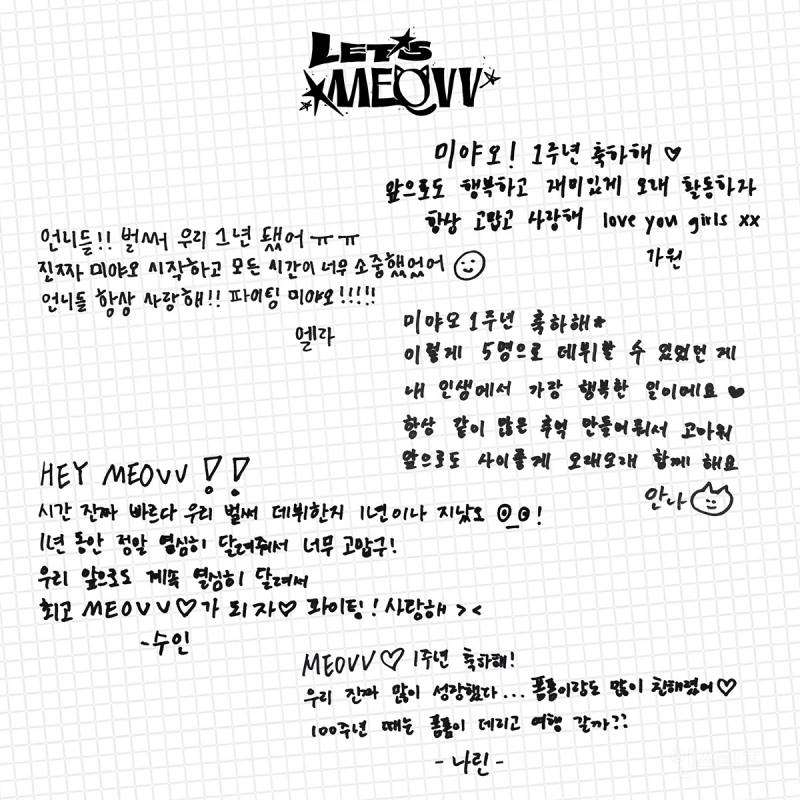 LET'S
MEOVV
미야오! 1주년 축하해 ♡
앞으로도 행복하고 재미있게 오래 활동하자
항상 고맙고 사랑해 love you girls xx
가원
언니들!! 벌써 우리 1년 됐어 ㅠㅠ
진짜 미야오 시작하고 모든 시간이 너무 소중했었어
언니들 항상 사랑해!! 파이팅 미야오!!!!!
엘라
미야오 1주년 축하해★
이렇게 5명으로 데뷔할 수 있었던 게
내 인생에서 가장 행복한 일이에요 ♥
항상 같이 많은 추억 만들어줘서 고마워
앞으로도 사이좋게 오래오래 함께 해요
안나
HEY MEOVV !!
시간 진짜 빠르다 우리 벌써 데뷔한지 1년이나 지났오 !
1년 동안 정말 열심히 달려줘서 너무 고맙구!
우리 앞으로도 계속 열심히 달려서
최고 MEOVV♡가 되자♡ 화이팅! 사랑해 > <
-수인
MEOVV♡ 1주년 축하해!
우리 진짜 많이 성장했다... 폼폼이랑도 많이 친해졌어♡
100주년 때는 폼폼이 데리고 여행 갈까??
- 나린 -